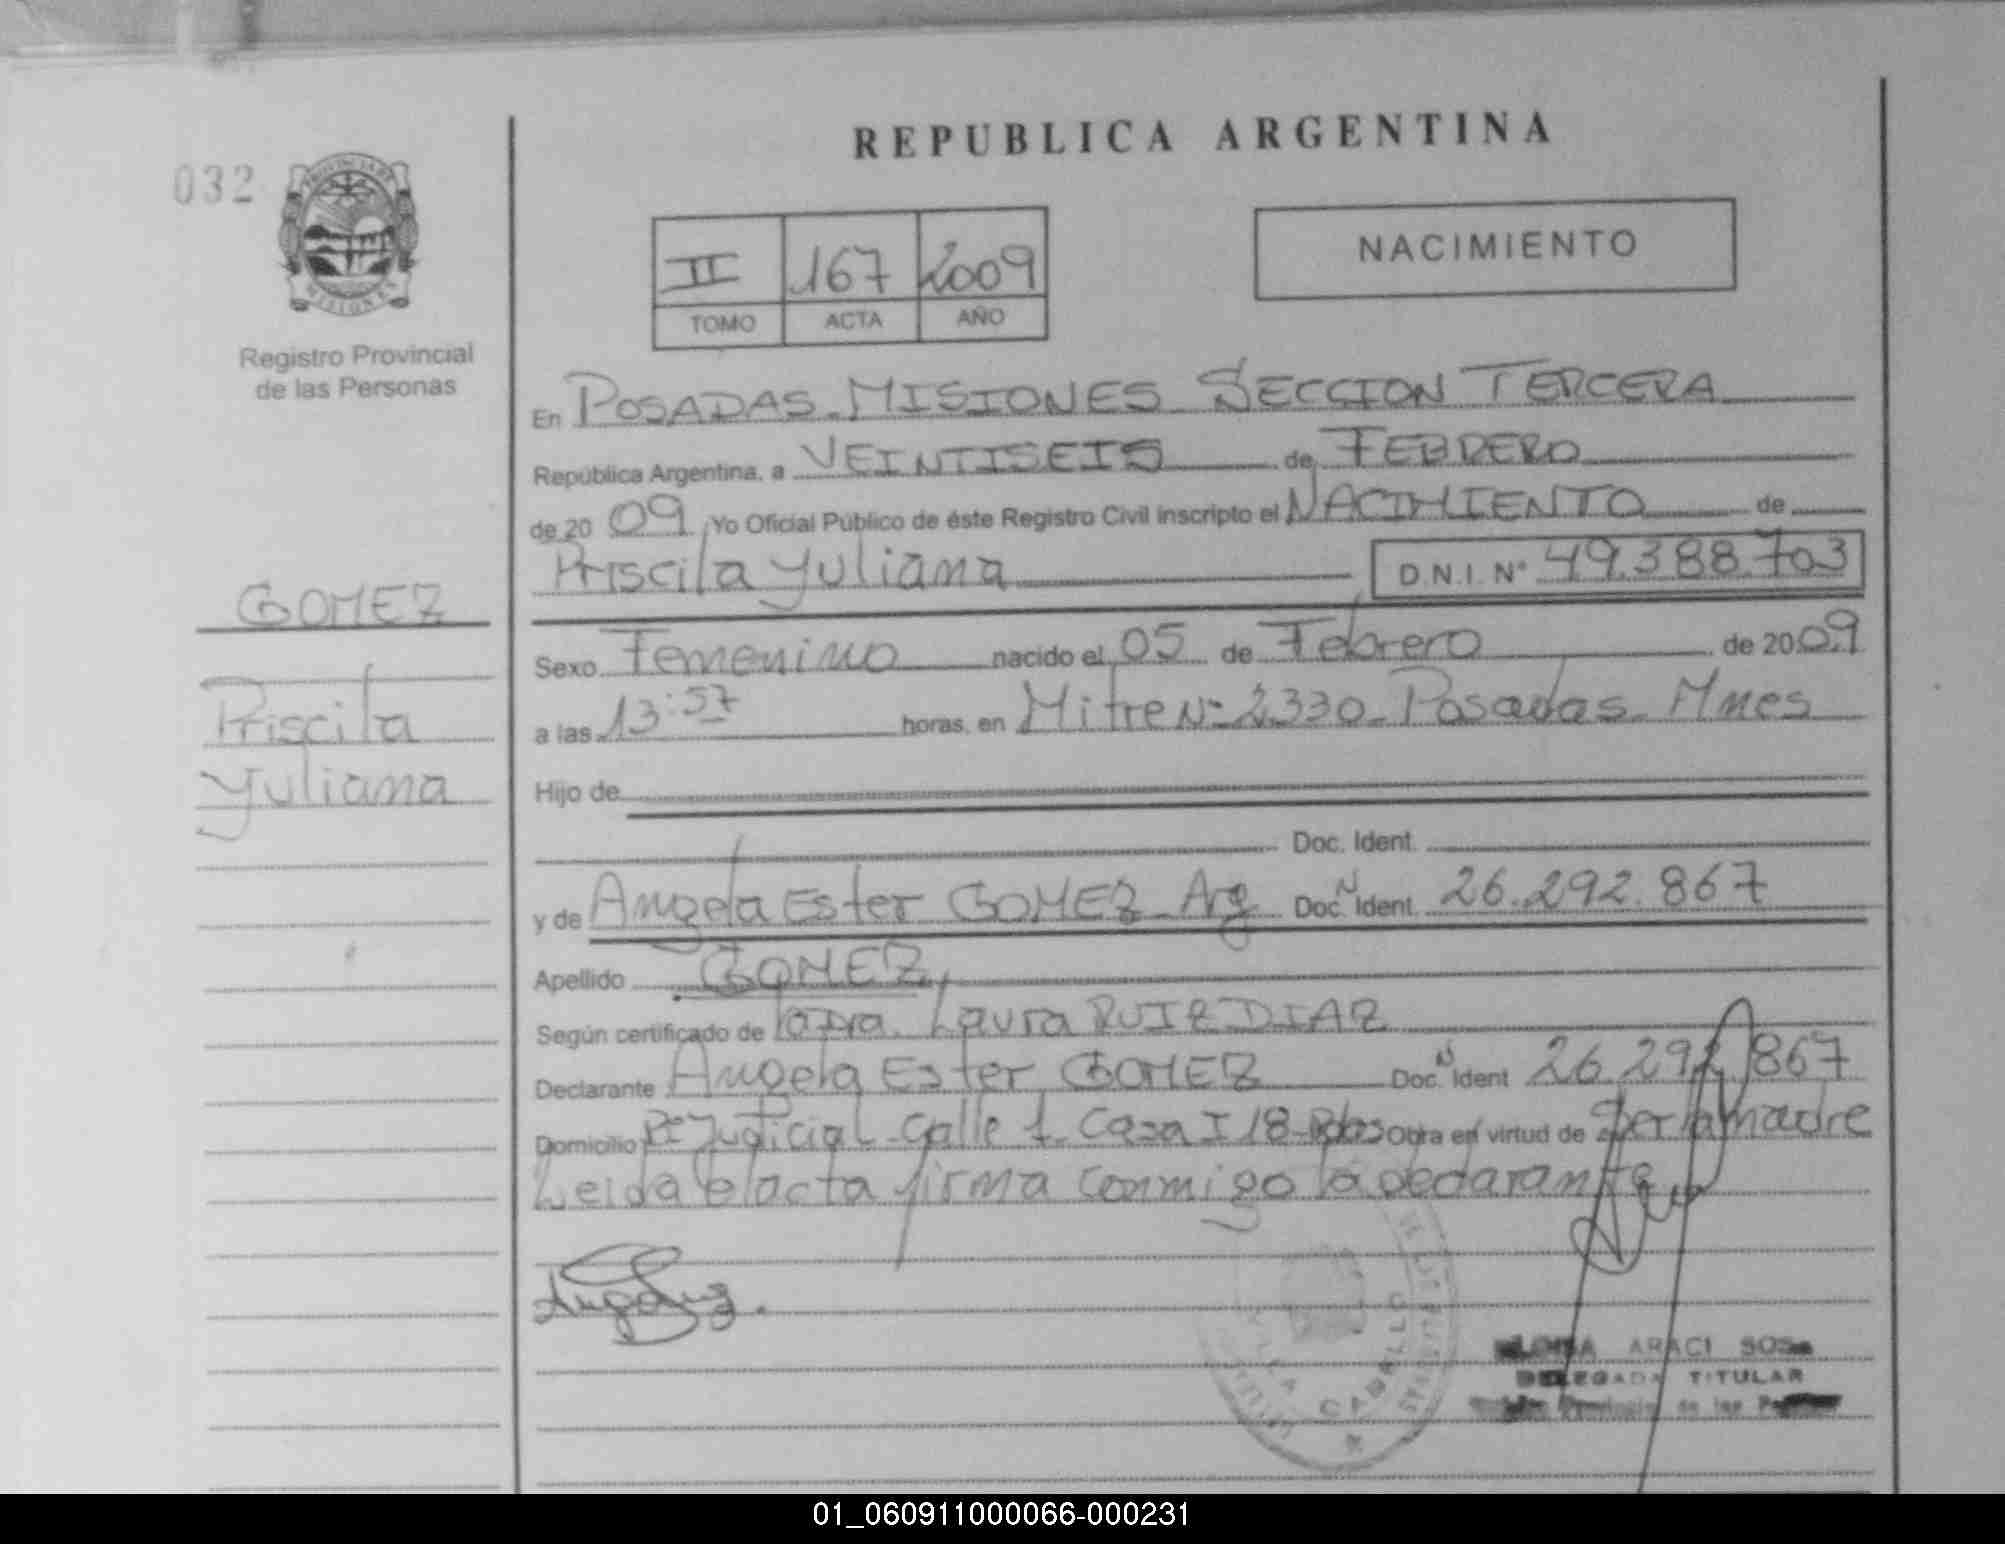 REPUBLICA ARGENTINA
032
PROVINCIA DE
MISIONES
Registro Provincial
de las Personas
II 167 2009
TOMO ACTA AÑO
NACIMIENTO
En POSADAS-MISIONES SECCION TERCERA
República Argentina, a VEINTISEIS de FEBRERO
de 20 09 Yo Oficial Público de éste Registro Civil inscripto el NACIMIENTO de
Priscila Yuliana D.N.I. N° 49.388.703
GOMEZ
Priscila
Yuliana
Sexo Femenino nacido el 05 de Febrero de 2009
a las 13:57 horas, en Mitre Nº 2330-Posadas-Mnes
Hijo de
Doc. Ident.
y de Angela Ester GOMEZ-Arg Doc. N Ident. 26.292.867
Apellido GOMEZ
Según certificado de la Dra. Laura RUIZ DIAZ
Declarante Angela Ester GOMEZ Doc. N Ident 26.292.867
Domicilio Judicial-Calle 1-Casa I 18- Obra en virtud de ser la madre
Leida el acta firma conmigo la declarante
VILLA CABELLO
ARACI SOSA
DELEGADA TITULAR
Provincial de las
01_060911000066-000231